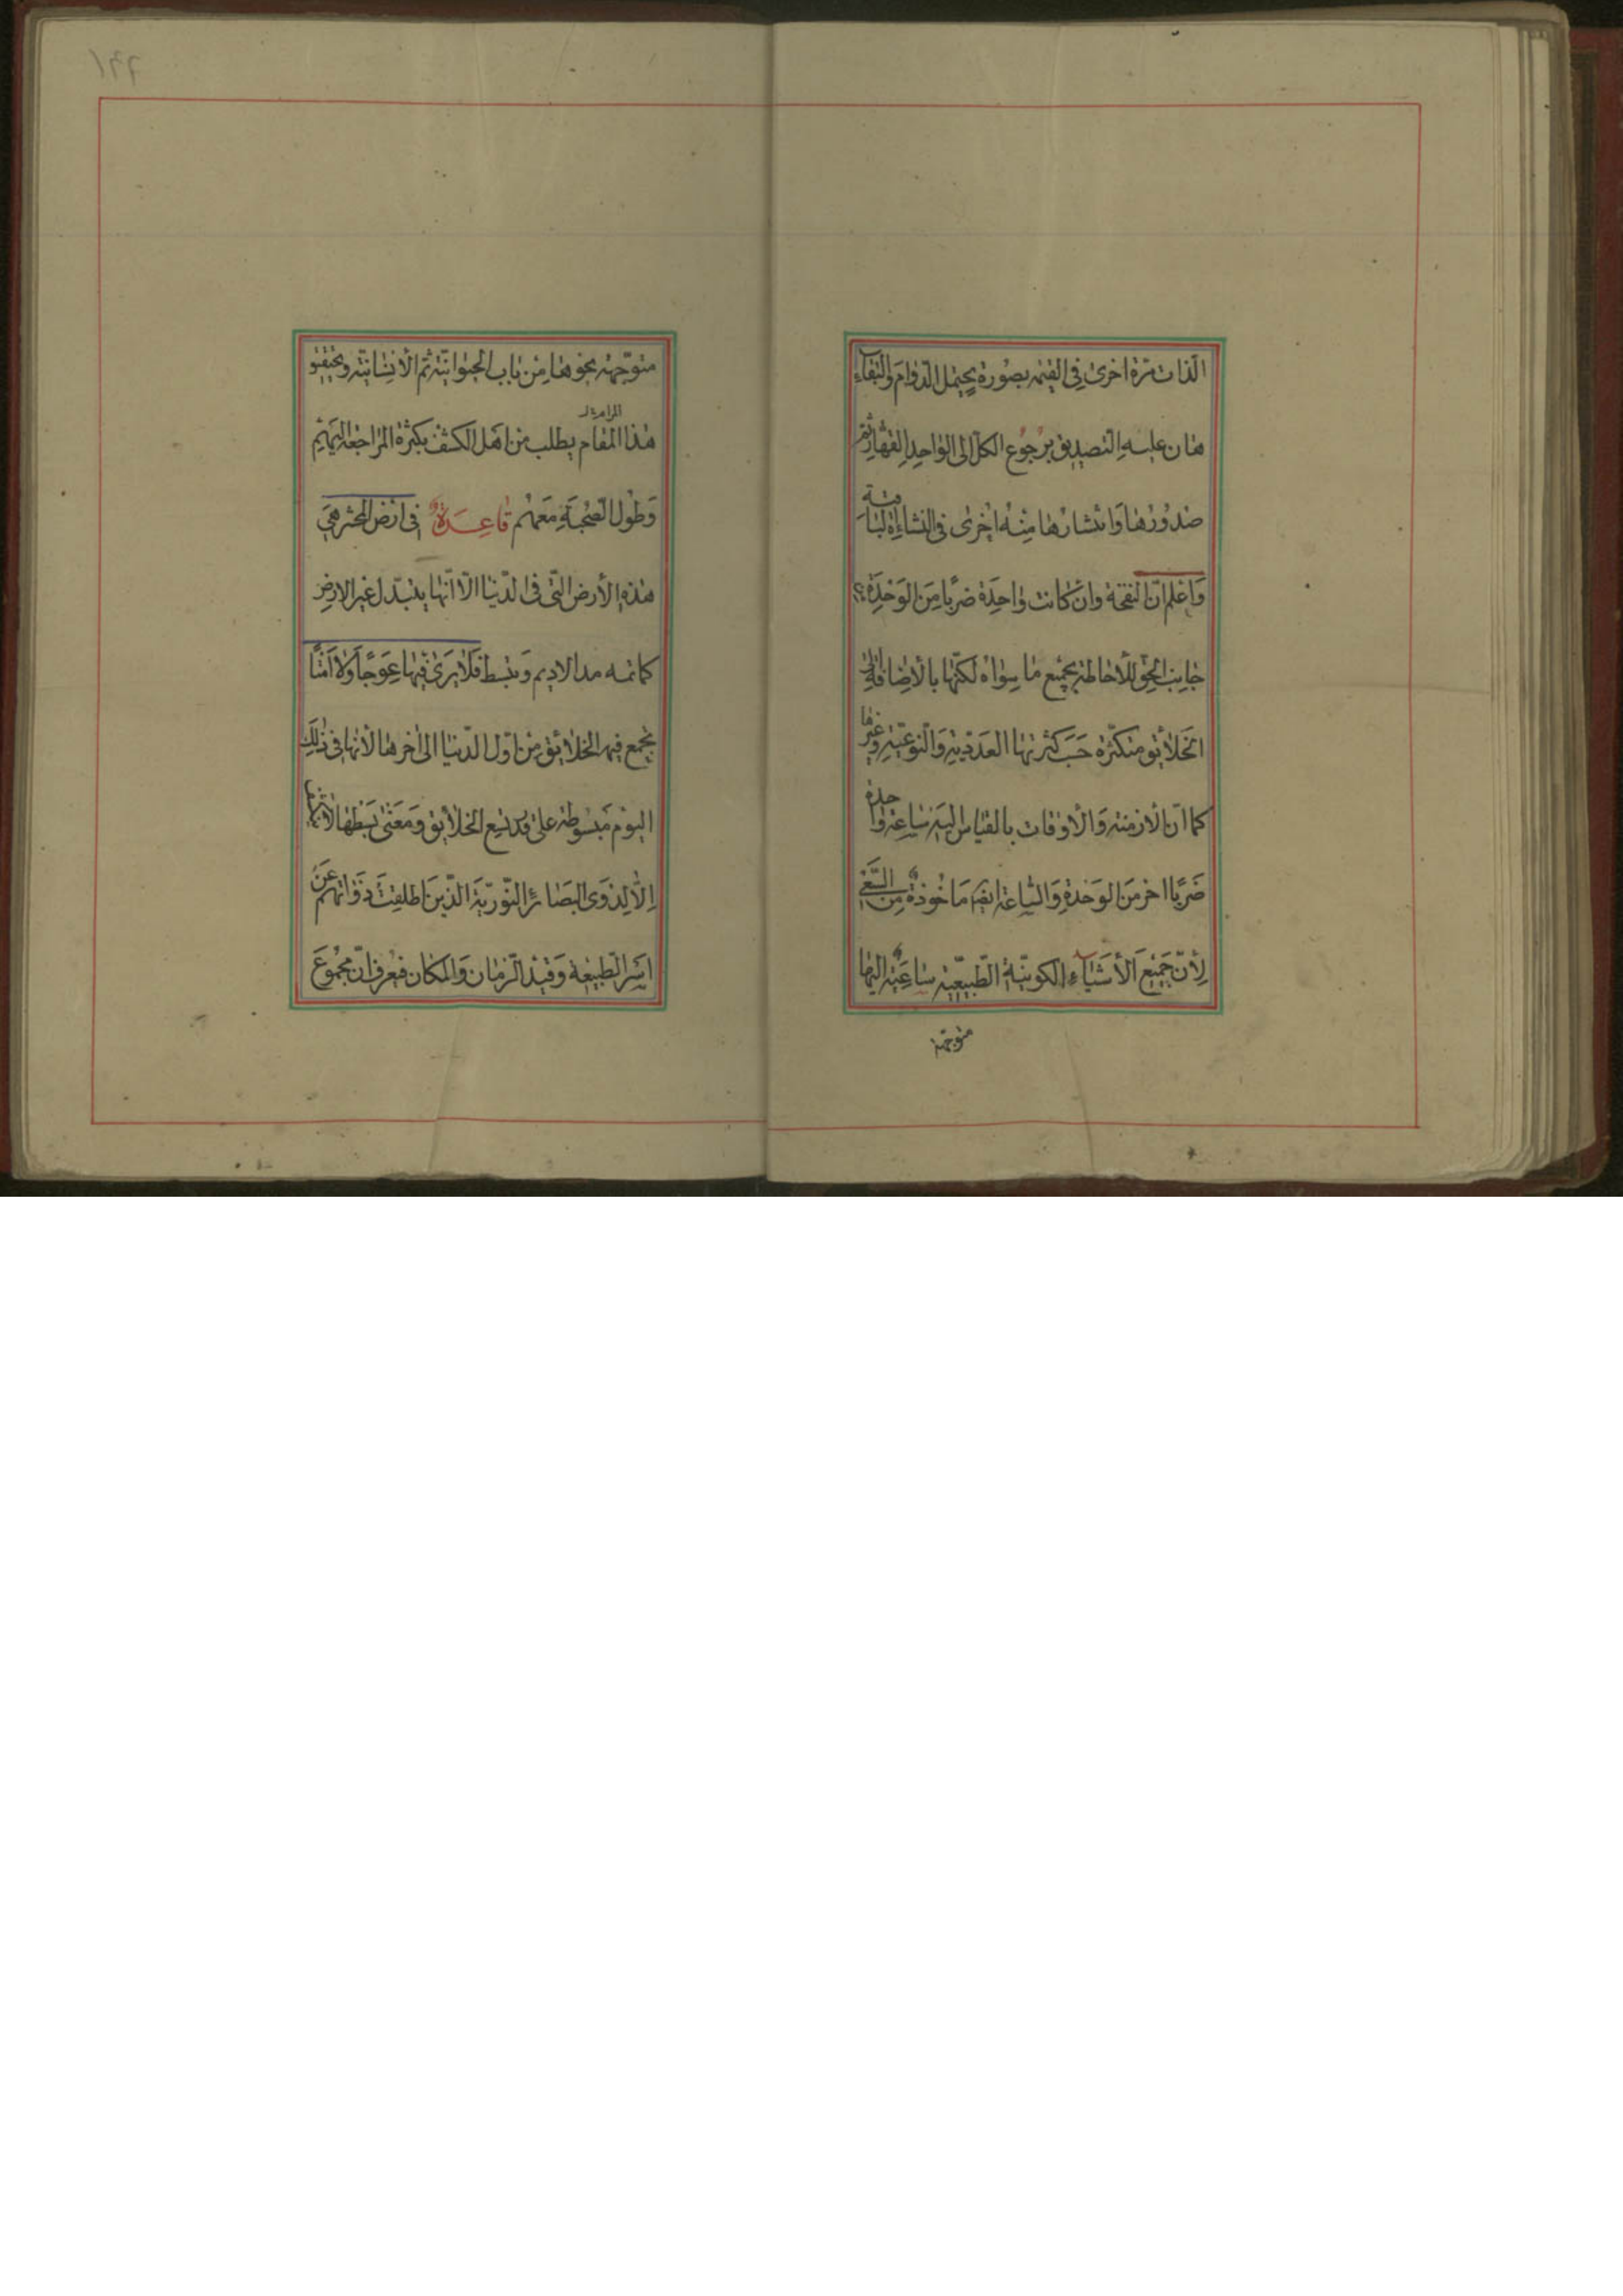 الذات مرة اخرى فى القيمه بصورة يحتمل الدوام والبقاء
هان عليه التصديق برجوع الكل الى الواحد القهار ثم
صدورها وانتشارها منه اخرى فى النشاءة الباقية
واعلم ان النفخة وان كانت واحدة ضربا من الوحدة
جانب الحق للأحاطة بجميع ما سواه لكنها بالأضافة الى
الخلائق متكثرة حسب كثرتها العددية والنوعية وغيرها
كما ان الازمنة والأوقات بالقياس اليه ساعة واحدة
ضربا اخر من الوحدة والساعة ايضا ماخوذة من السعى
لأن جميع الأشياء الكونية الطبيعية ساعية اليها
متوجهة
متوجهة نحوها من باب الحيوانية ثم الأنسانية وتحقيق
المرام خ
هذا المقام يطلب من اهل الكشف بكثرة المراجعة اليهم
وطول الصحبة معهم قاعدة فى ارض المحشر هى
هذه الأرض التى فى الدنيا الا انها يتبدل غير الارض
كانه مد الاديم وتبسط فلا يرى فيها عوجا ولا امتا
يجمع فيه الخلائق من اول الدنيا الى اخرها لأنها فى ذلك
اليوم مبسوطة على قدر يسع الخلائق ومعنى بسطها لا
الا لذوى البصائر النورية الذين اطلقت ذواتهم عن
اسر الطبيعة وقيد الزمان والمكان فيعرف ان مجموع